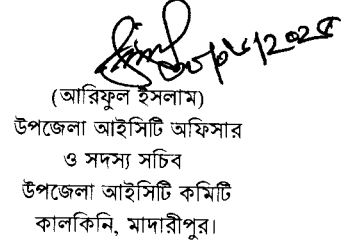 (আরিফুল ইসলাম)
উপজেলা আইসিটি অফিসার
ও সদস্য সচিব
উপজেলা আইসিটি কমিটি
কালকিনি, মাদারীপুর।